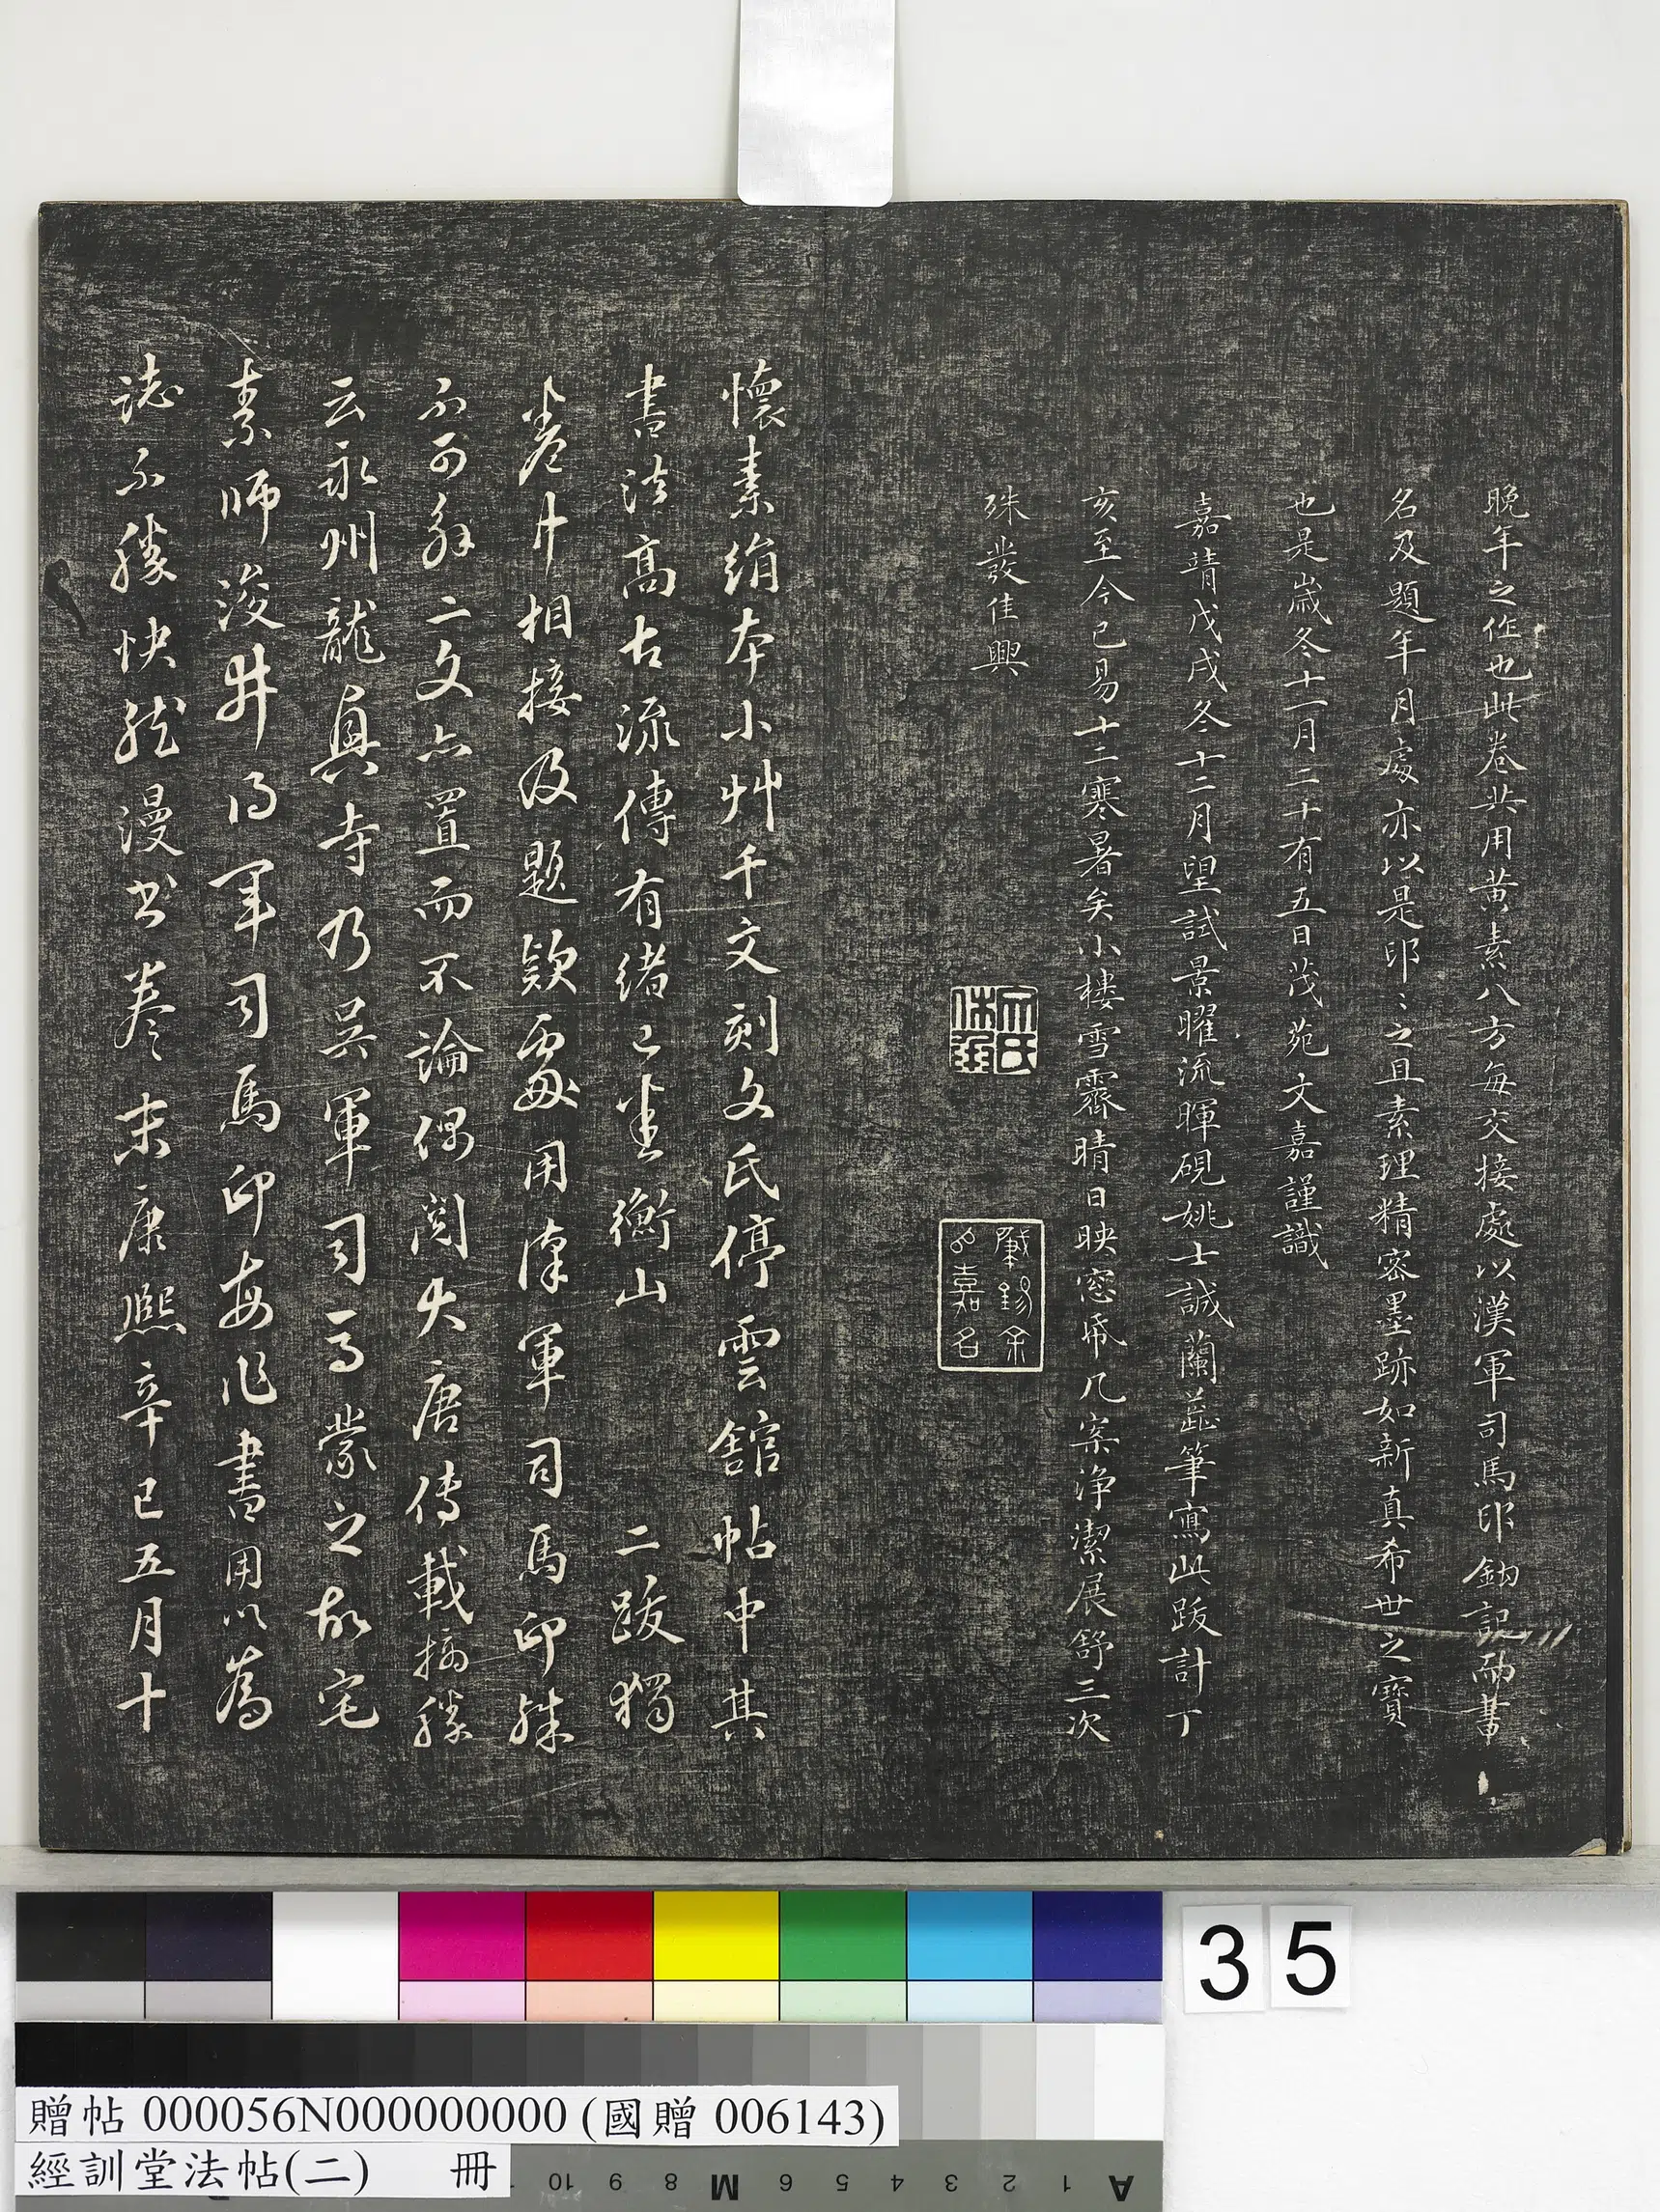 晚年之作也此卷共用黃素八方每交接處以漢軍司馬印鈐記而書
名及題年月處亦以是印〻之且素理精密墨跡如新真希世之寶
也是歲冬十一月二十有五日茂苑文嘉謹識
嘉靖戊戌冬十二月望試景曜流暉硯姚士誠蘭蕋筆寫此跋計丁
亥至今已易十二寒暑矣小樓雪霽晴日映窓帋几案淨潔展舒三次
殊發佳興
文氏休承
肇錫余以嘉名
懷素絹本小艸千文刻文氏停雲館帖中其
書法高古流傳有緒已在衡山二跋獨
卷中相接及題欵處用漢軍司馬印殊
不可解二文亦置而不論偶閱大唐傳載摭勝
云永州龍興寺乃吳軍司馬蒙之故宅
素師浚井得軍司馬印每作書用以為
誌不勝快然漫書卷末康熙辛巳五月十
35
贈帖 000056N000000000 (國贈 006143)
經訓堂法帖(二) 冊
10 9 8 M 6 5 4 3 2 1 A